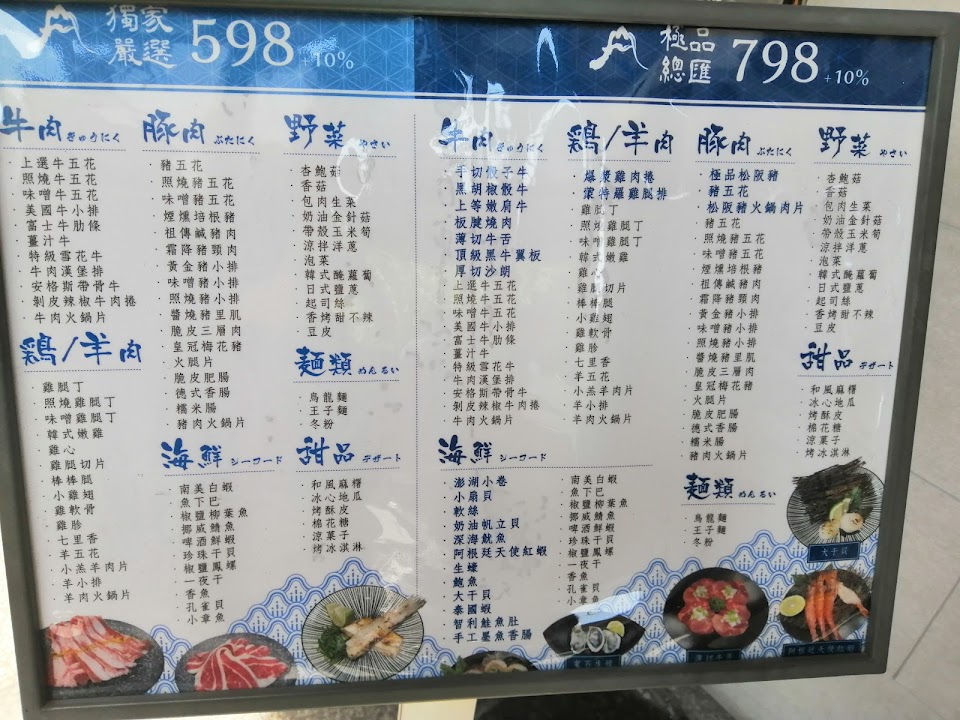 獨家
嚴選 598 +10%
牛肉 ぎゅうにく
・上選牛五花
・照燒牛五花
・味噌牛五花
・美國牛小排
・富士牛肋條
・薑汁牛
・特級雪花牛
・牛肉漢堡排
・安格斯帶骨牛
・剝皮辣椒牛肉捲
・牛肉火鍋片
鶏/羊肉
・雞腿丁
・照燒雞腿丁
・味噌雞腿丁
・韓式嫩雞
・雞心
・雞腿切片
・棒棒腿
・小雞翅
・雞軟骨
・雞胗
・七里香
・羊五花
・小羔羊肉片
・羊小排
・羊肉火鍋片
豚肉 ぶたにく
・豬五花
・照燒豬五花
・味噌豬五花
・煙燻培根豬
・祖傳鹹豬肉
・霜降豬頸肉
・黃金豬小排
・味噌豬小排
・照燒豬小排
・醬燒豬里肌
・脆皮三層肉
・皇冠梅花豬
・火腿片
・脆皮肥腸
・德式香腸
・糯米腸
・豬肉火鍋片
海鮮 シーフード
・南美白蝦
・魚下巴
・椒鹽柳葉魚
・挪威鯖魚
・啤酒鮮蝦
・珍珠干貝
・椒鹽鳳螺
・一夜干
・香魚
・孔雀貝
・小章魚
野菜 やさい
・杏鮑菇
・香菇
・包肉生菜
・奶油金針菇
・帶殼玉米筍
・涼拌洋蔥
・泡菜
・韓式醃蘿蔔
・日式鹽蔥
・起司絲
・香烤甜不辣
・豆皮
麵類 めんるい
・烏龍麵
・王子麵
・冬粉
甜品 デザート
・和風麻糬
・冰心地瓜
・烤酥皮
・棉花糖
・涼菓子
・烤冰淇淋
極品
總匯 798 +10%
牛肉 ぎゅうにく
・手切骰子牛
・黑胡椒骰牛
・上等嫩肩牛
・板腱燒肉
・薄切牛舌
・頂級黑牛翼板
・厚切沙朗
・上選牛五花
・照燒牛五花
・味噌牛五花
・美國牛小排
・富士牛肋條
・薑汁牛
・特級雪花牛
・牛肉漢堡排
・安格斯帶骨牛
・剝皮辣椒牛肉捲
・牛肉火鍋片
鶏/羊肉
・爆漿雞肉捲
・蒙特羅雞腿排
・雞腿丁
・照燒雞腿丁
・味噌雞腿丁
・韓式嫩雞
・雞心
・雞腿切片
・棒棒腿
・小雞翅
・雞軟骨
・雞胗
・七里香
・羊五花
・小羔羊肉片
・羊小排
・羊肉火鍋片
海鮮 シーフード
・澎湖小卷
・小扇貝
・軟絲
・奶油帆立貝
・深海魷魚
・阿根廷天使紅蝦
・生蠔
・鮑魚
・大干貝
・泰國蝦
・智利鮭魚肚
・手工墨魚香腸
・南美白蝦
・魚下巴
・椒鹽柳葉魚
・挪威鯖魚
・啤酒鮮蝦
・珍珠干貝
・椒鹽鳳螺
・一夜干
・香魚
・孔雀貝
・小章魚
豚肉 ぶたにく
・極品松阪豬
・豬五花
・松阪豬火鍋肉片
・豬五花
・照燒豬五花
・味噌豬五花
・煙燻培根豬
・祖傳鹹豬肉
・霜降豬頸肉
・黃金豬小排
・味噌豬小排
・照燒豬小排
・醬燒豬里肌
・脆皮三層肉
・皇冠梅花豬
・火腿片
・脆皮肥腸
・德式香腸
・糯米腸
・豬肉火鍋片
麵類 めんるい
・烏龍麵
・王子麵
・冬粉
野菜 やさい
・杏鮑菇
・香菇
・包肉生菜
・奶油金針菇
・帶殼玉米筍
・涼拌洋蔥
・泡菜
・韓式醃蘿蔔
・日式鹽蔥
・起司絲
・香烤甜不辣
・豆皮
甜品 デザート
・和風麻糬
・冰心地瓜
・烤酥皮
・棉花糖
・涼菓子
・烤冰淇淋
大干貝
薄切牛舌
阿根廷天使紅蝦